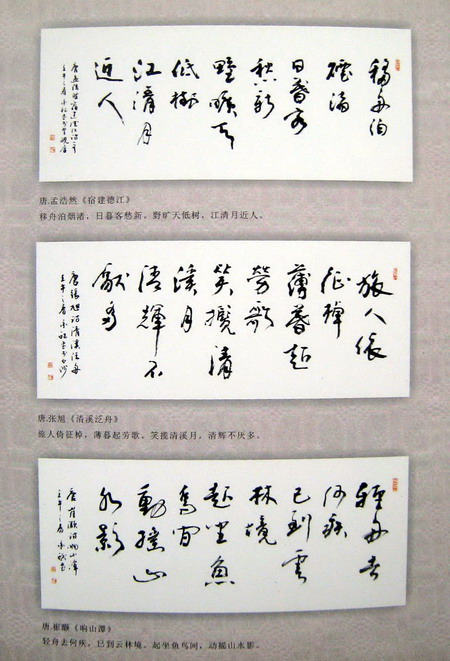 移舟泊
烟渚
日暮客
愁新
野曠天
低樹
江清月
近人
唐.孟浩然《宿建德江》
移舟泊烟渚,日暮客愁新,野旷天低树,江清月近人。
旅人倚
征棹
薄暮起
勞歌
笑攬清
溪月
清輝不
厭多
唐張旭詩清溪泛舟
唐.张旭《清溪泛舟》
旅人倚征棹,薄暮起劳歌,笑揽清溪月,清辉不厌多。
輕舟去
何疾
已到雲
林境
起坐魚
鳥間
動搖山
水影
唐.崔颢《响山潭》
轻舟去何疾,已到云林境。起坐鱼鸟间,动摇山水影。